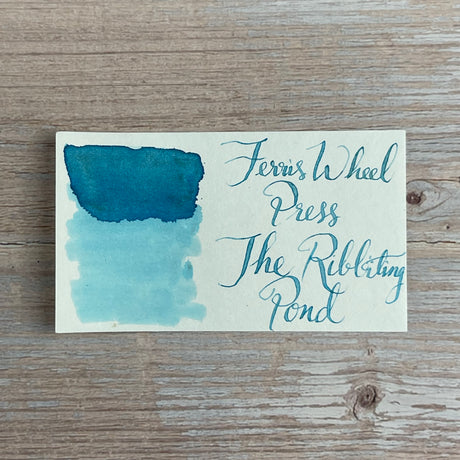 Ferris Wheel
Press
The Ribbiting
Pond